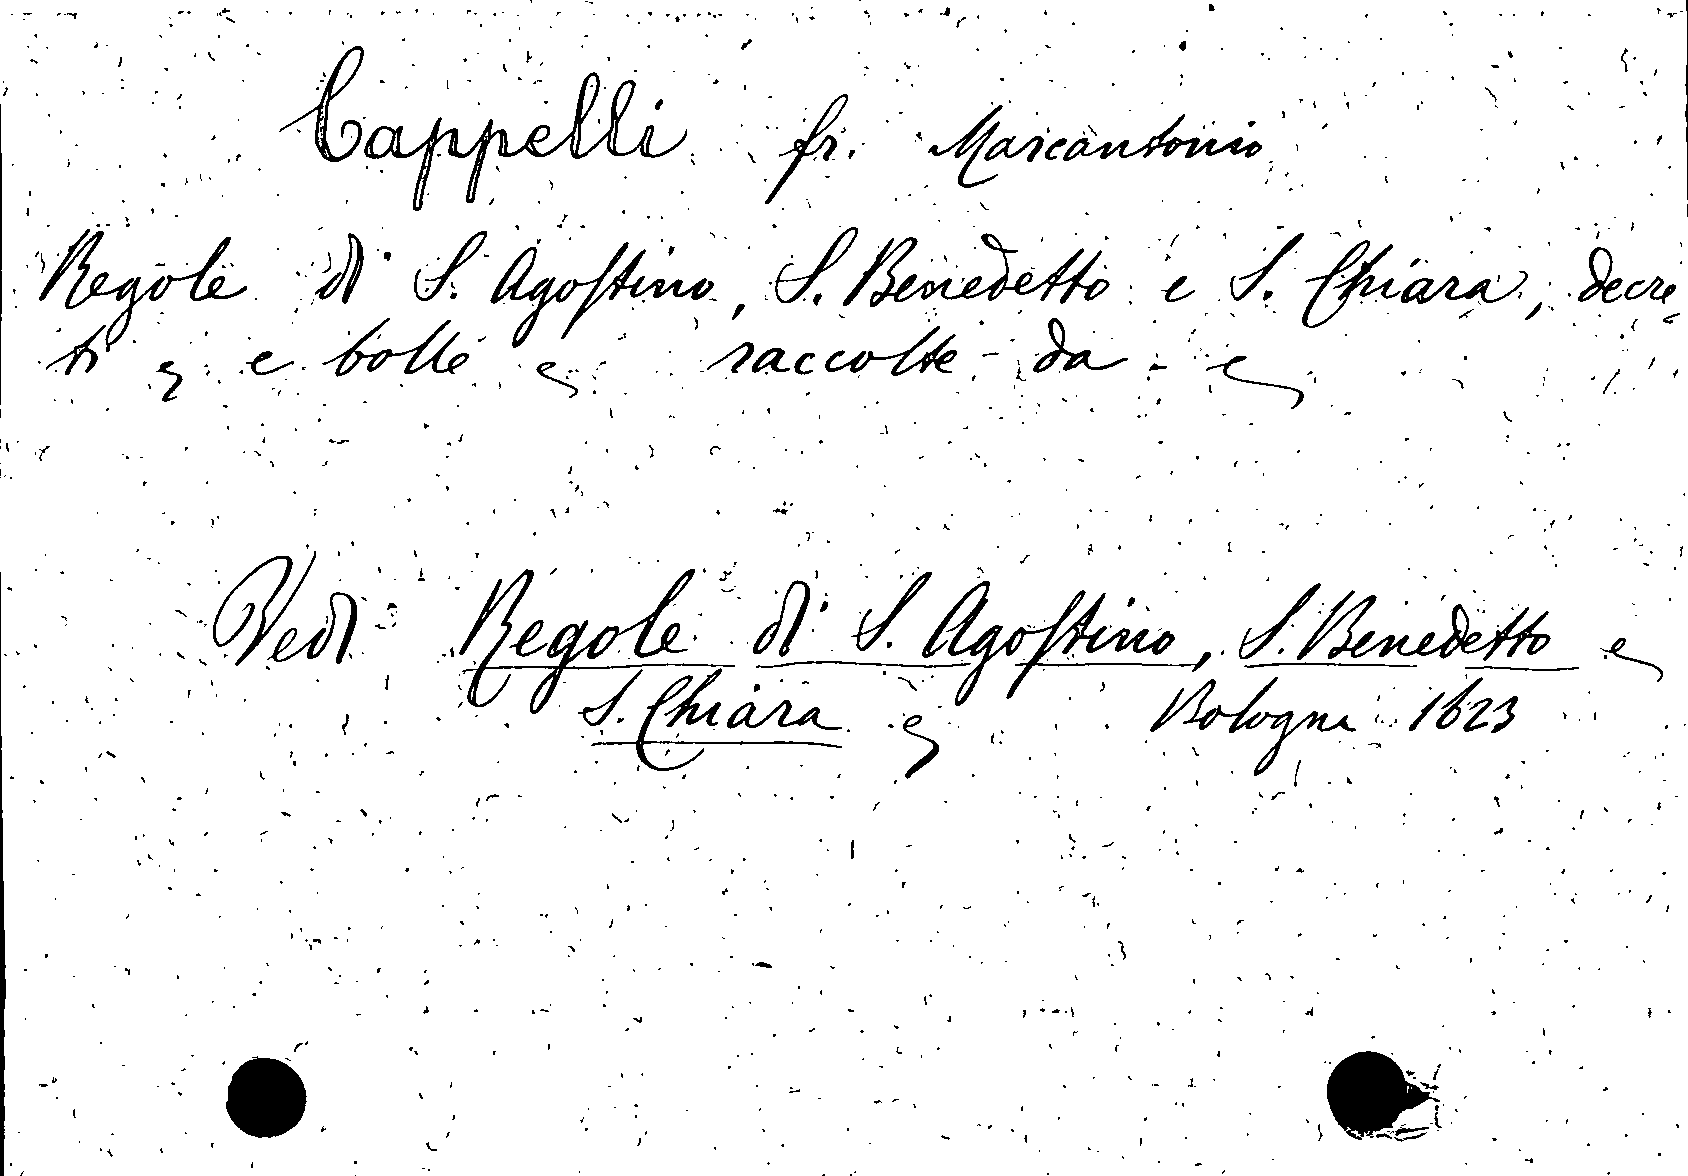 Cappelli fr. Marcantonio
Regole di S. Agostino, S. Benedetto e S. Chiara, decre
ti e bolle raccolte da
Vedi Regole di S. Agostino, S. Benedetto e
S. Chiara Bologna 1623